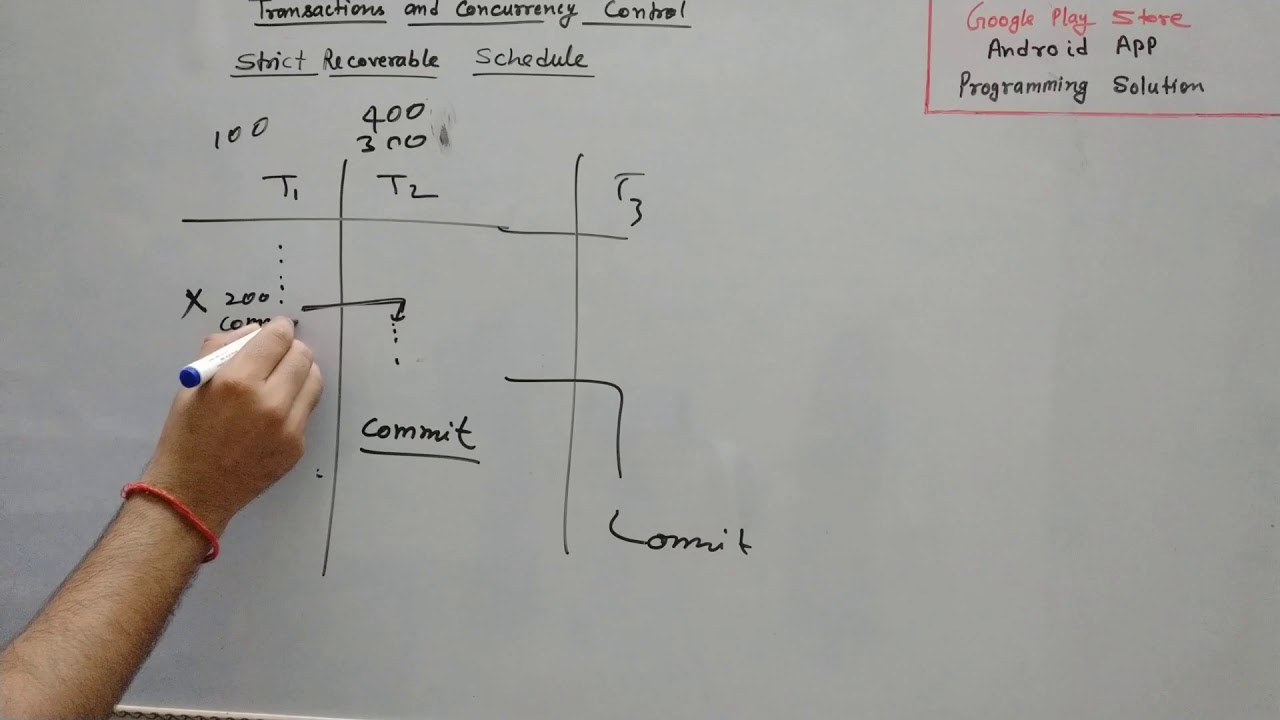 Transactions and Concurrency Control
Strict Recoverable Schedule
Google Play Store
Android App
Programming Solution
100
400
300
T1
T2
T3
X 200
Commit
Commit